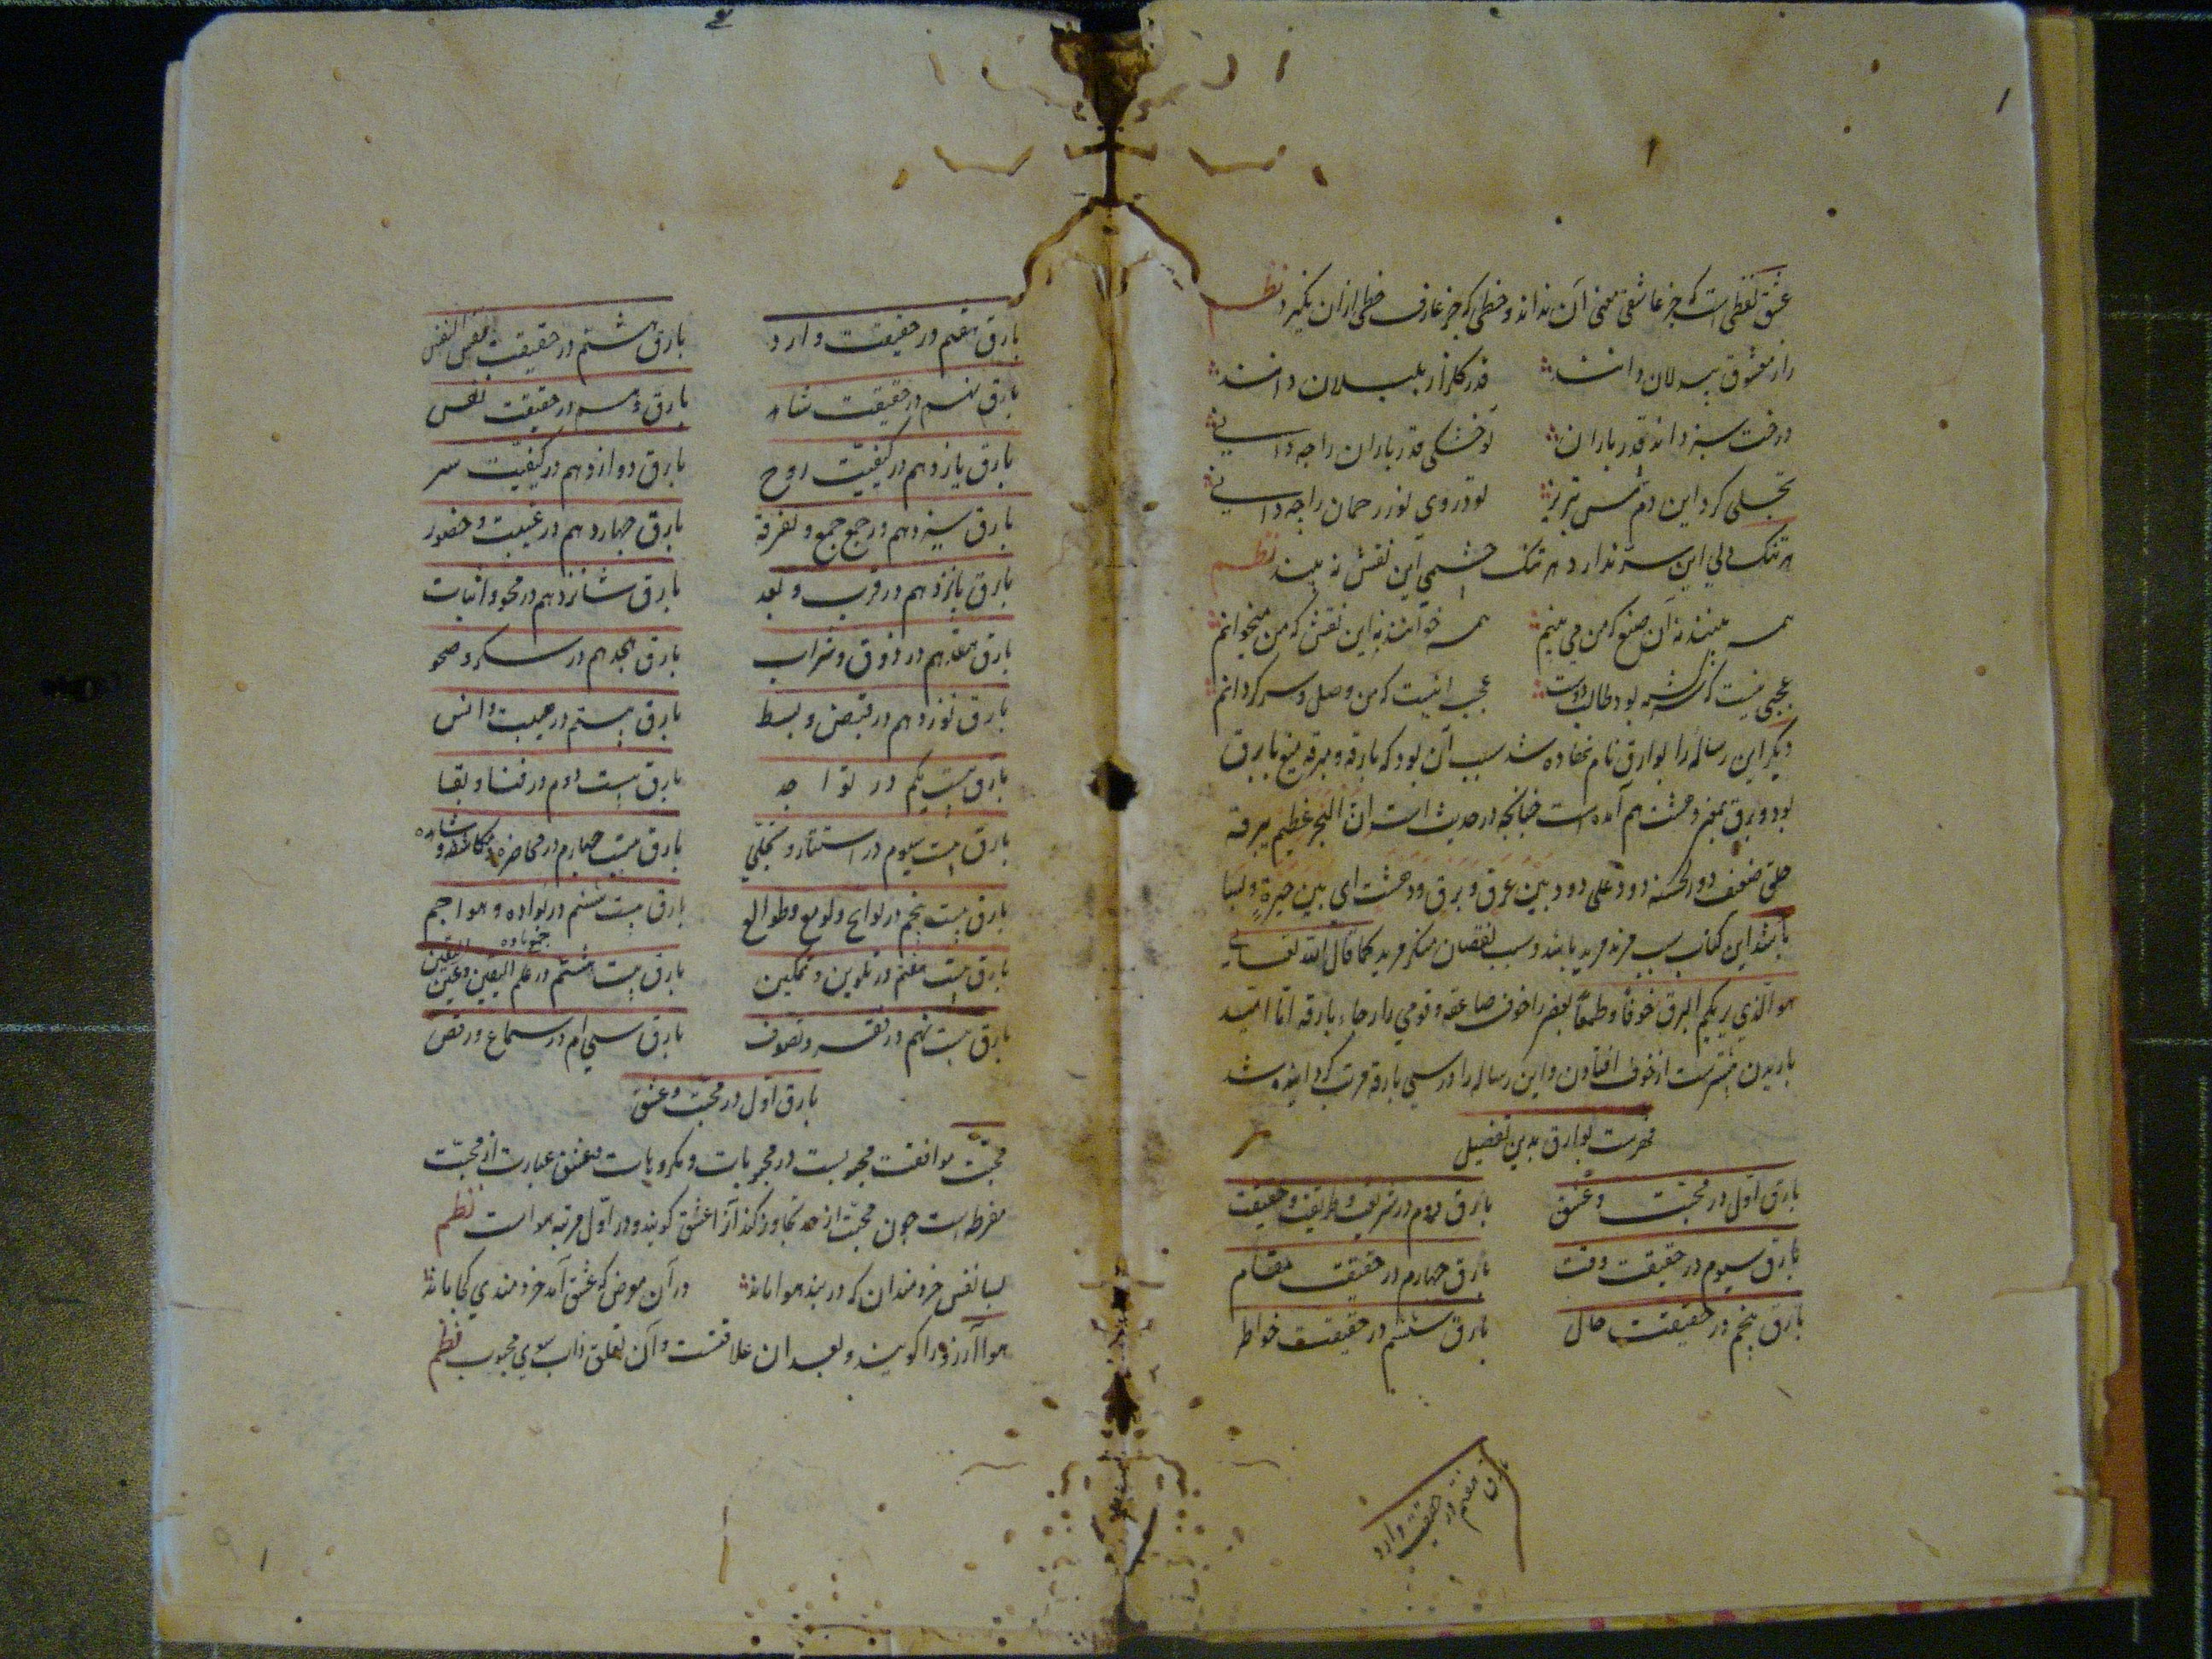 عشق لفظی است که جز عاشق معنی آن نداند و خطی که جز عارف حظی ازان نگیرد نظم
راز معشوق بیدلان دانند قدر گلزار بلبلان دانند
درخت سبز داند قدر باران تو خشکی قدر باران را چه دانی
تجلی کرد این دم شمس تبریز تو در روی نور رحمان را چه دانی
هر تنک دلی این سر ندارد هر تنک چشمی این نقش نه بیند نظم
همه بینند نه آن صنع که من می بینم همه خوانند نه این نقش که من میخوانم
عجبی نیست که سرگشته بود طالب دوست عجب اینست که من واصل و سرگردانم
دیگر این رساله را بوارق نام نهاده شد سبب آن بود که بارقه و برقه میغ با برق
بود و برق بمعنی دهشت هم آمده است چنانچه در حدیث است ان البحر عظیم یرقه
خلق ضعیف دود علی دود بین غرق و برق ودهشت ای بین حیرة و بسا
باشد این کتاب سبب مزید مرید باشد و سبب نقصان منکر مرید کما قال الله تعالی
هو الذی یریکم البرق خوفا و طمعا بعضی را خوف صاعقه و قومی را رجاء بارقه اما امید
باریدن بیشترست از خوف افتادن و این رساله را در سی بارقه مرتب گردانیده شد
فهرست بوارق بدین تفصیل
بارق اول در محبت و عشق بارق دوم در شریعت و طریقت و حقیقت
بارق سیوم در حقیقت وقت بارق چهارم در حقیقت مقام
بارق پنجم در حقیقت حال بارق ششم در حقیقت خواطر
بارق هفتم در حقیقت وارد
بارق هفتم در حقیقت وارد بارق هشتم در حقیقت نفس النفس
بارق نهم در حقیقت شاهد بارق دهم در حقیقت نفس
بارق یازدهم در کیفیت روح بارق دوازدهم در کیفیت سر
بارق سیزدهم در جمع جمع و تفرقه بارق چهاردهم در غیبت و حضور
بارق پانزدهم در قرب و بعد بارق شانزدهم در محو و اثبات
بارق هفدهم در ذوق و شراب بارق هجدهم در سکر و صحو
بارق نوزدهم در قبض و بسط بارق بیستم در هیبت و انس
بارق بیست یکم در تواجد بارق بیست دوم در فنا و بقا
بارق بیست سیوم در استتار و تجلی بارق بیست چهارم در محاضره و مکاشفه و مشاهده
بارق بیست پنجم در لوایح و لوامع و طوالع بارق بیست ششم در بواده و هواجم
بارق بیست هفتم در تلوین و تمکین بارق بیست هشتم در علم الیقین و عین الیقین
بارق بیست نهم در فقر و تصوف بارق سی ام در سماع و رقص
بارق اول در محبت و عشق
محبت موافقت محبوبست در محبوبات و مکروهات و عشق عبارت از محبت
مفرط است چون محبت از حد تجاوز کند آنرا عشق گویند و در اول مرتبه هوا است نظم
بسا نفس خردمندان که در بند هوا ماند در آن موضع که عشق آمد خردمندی کجا ماند
هوا آرزو را گویند و بعد ان علاقتست و آن تعلق ذاب سوی محبوب نظم